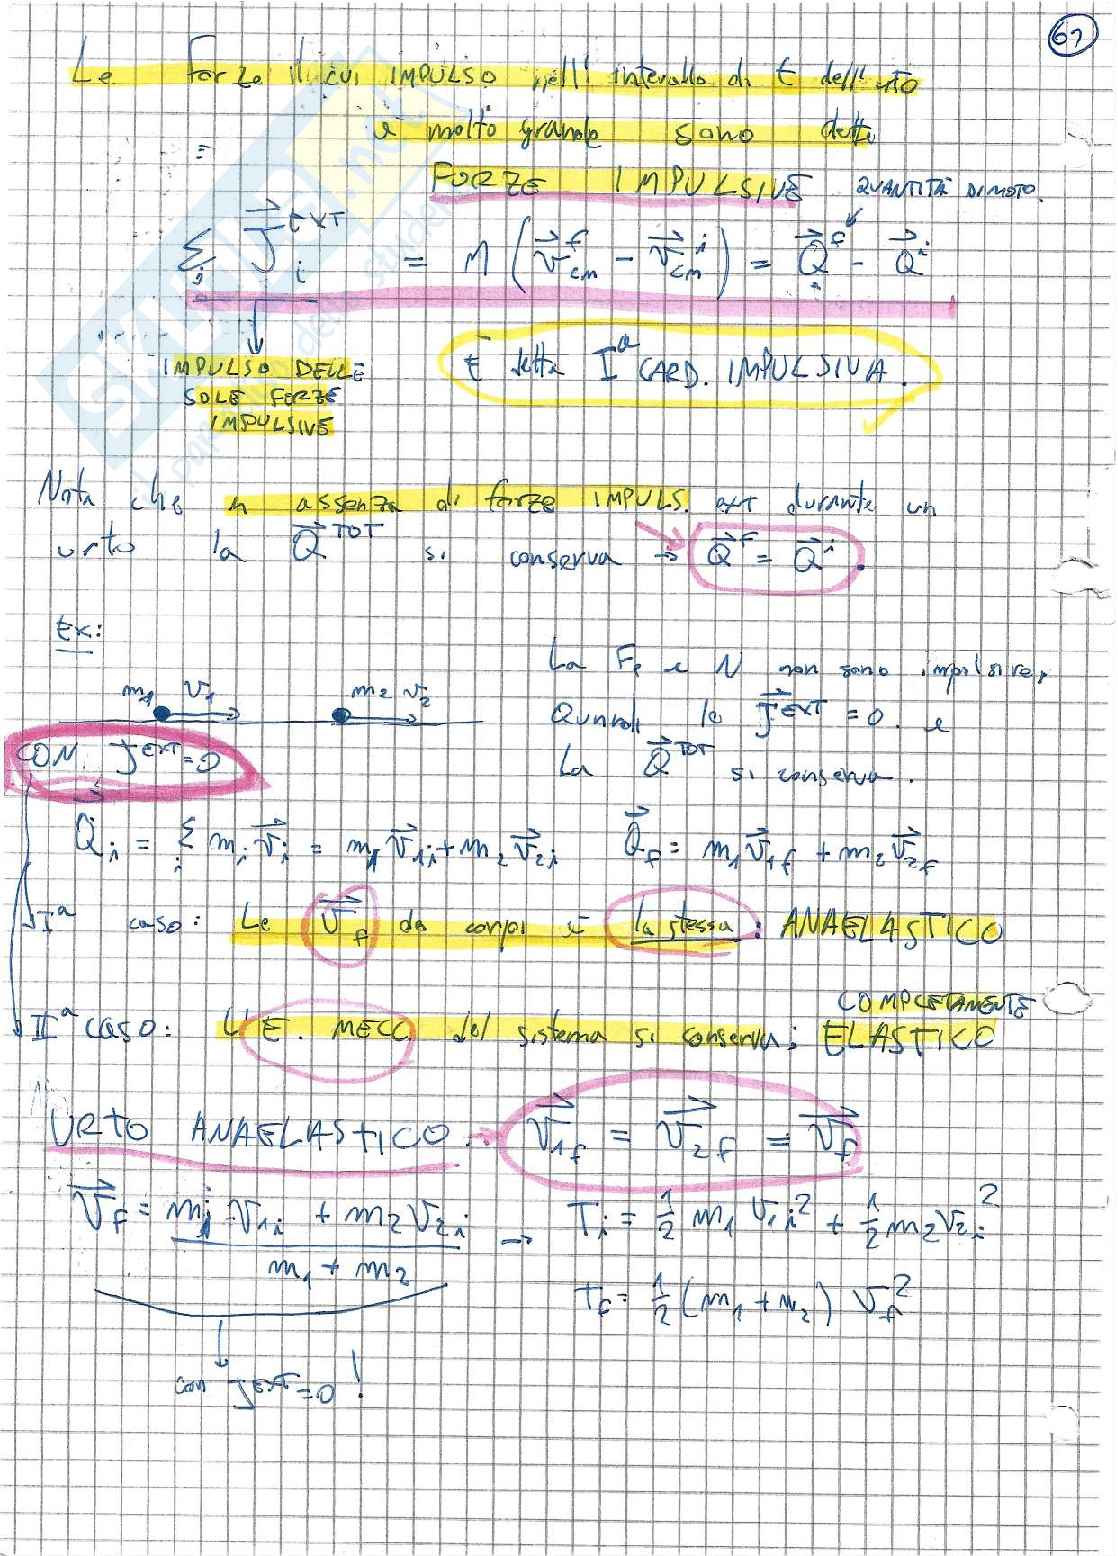 67
Le forze il cui IMPULSO nell'intervallo di t dell'urto
è molto grande sono dette
FORZE IMPULSIVE QUANTITÀ DI MOTO.
Σ J⃗ᵢ^EXT = M (v⃗cm^f - v⃗cm^i) = Q⃗^f - Q⃗^i
IMPULSO DELLE
SOLE FORZE
IMPULSIVE
È detta Iª CARD. IMPULSIVA.
Nota che in assenza di forze IMPULS. ext durante un
urto la Q⃗^TOT si conserva → Q⃗^f = Q⃗^i.
Ex:
m₁ v₁ m₂ v₂
La Fp e N non sono impulsive,
Quindi lo J⃗^EXT = 0. e
La Q⃗^TOT si conserva.
CON J^EXT = 0
Q⃗ᵢ = Σ mᵢ v⃗ᵢ = m₁ v⃗₁ᵢ + m₂ v⃗₂ᵢ Q⃗f = m₁ v⃗₁f + m₂ v⃗₂f
Iª caso: Le v⃗f dei corpi è la stessa: ANAELASTICO
IIª caso: L'E. MECC. del sistema si conserva; COMPLETAMENTE ELASTICO
URTO ANAELASTICO. → v⃗₁f = v⃗₂f = v⃗f
v⃗f = (m₁ v₁ᵢ + m₂ v₂ᵢ) / (m₁ + m₂) → Tᵢ = 1/2 m₁ v₁ᵢ² + 1/2 m₂ v₂ᵢ²
Tf = 1/2 (m₁ + m₂) vf²
con J^EXT = 0 !